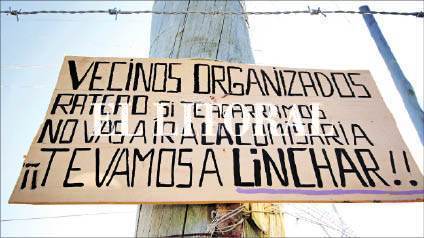 VECINOS ORGANIZADOS
RATERO SI TE AGARRAMOS
NO VAS A IR A LA COMISARIA
¡¡TE VAMOS A LINCHAR!!
EL LITORAL